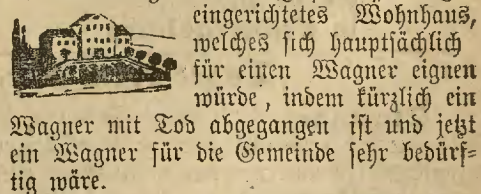 eingerichtetes Wohnhaus,
welches sich hauptsächlich
für einen Wagner eignen
würde, indem kürzlich ein
Wagner mit Tod abgegangen ist und jetzt
ein Wagner für die Gemeinde sehr bedürf=
tig wäre.